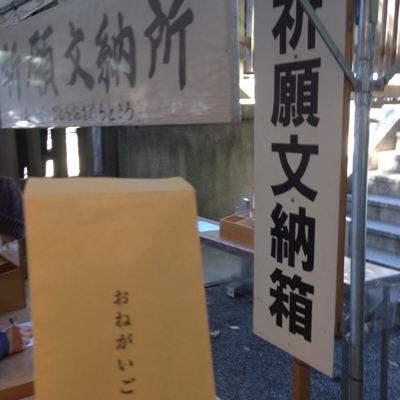 祈願文納所
祈願文納箱
おねがいご